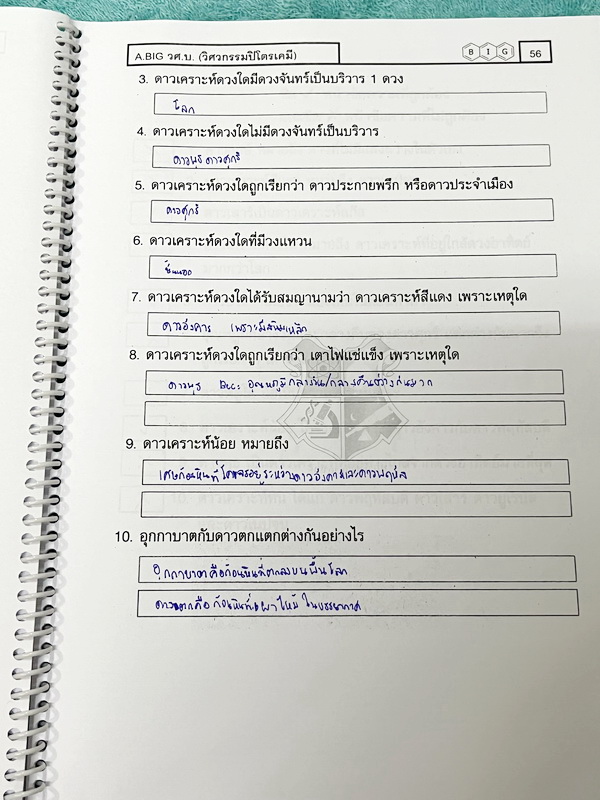 A.BIG วศ.บ. (วิศวกรรมปิโตรเคมี) B I G 56
3. ดาวเคราะห์ดวงใดมีดวงจันทร์เป็นบริวาร 1 ดวง
โลก
4. ดาวเคราะห์ดวงใดไม่มีดวงจันทร์เป็นบริวาร
ดาวพุธ ดาวศุกร์
5. ดาวเคราะห์ดวงใดถูกเรียกว่า ดาวประกายพรึก หรือดาวประจำเมือง
ดาวศุกร์
6. ดาวเคราะห์ดวงใดที่มีวงแหวน
7. ดาวเคราะห์ดวงใดได้รับสมญานามว่า ดาวเคราะห์สีแดง เพราะเหตุใด
ดาวอังคาร เพราะมีสนิมเหล็ก
8. ดาวเคราะห์ดวงใดถูกเรียกว่า เตาไฟแช่แข็ง เพราะเหตุใด
ดาวพุธ อุณหภูมิกลางวัน/กลางคืนต่างกันมาก
9. ดาวเคราะห์น้อย หมายถึง
เศษก้อนหินที่โคจรอยู่ระหว่างดาวอังคารและดาวพฤหัส
10. อุกกาบาตกับดาวตกแตกต่างกันอย่างไร
อุกกาบาตคือก้อนหินที่ตกลงบนพื้นโลก
ดาวตกคือ ก้อนหินที่เผาไหม้ในบรรยากาศ